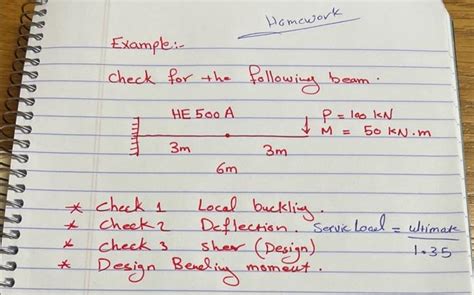 Homework
Example:-
Check for the following beam.
HE 500 A
P = 100 kN
M = 50 kN.m
3m 3m
6m
* Check 1 Local buckling.
* Check 2 Deflection. Service Load = ultimate / 1.35
* Check 3 sher (Design)
* Design Bending moment.